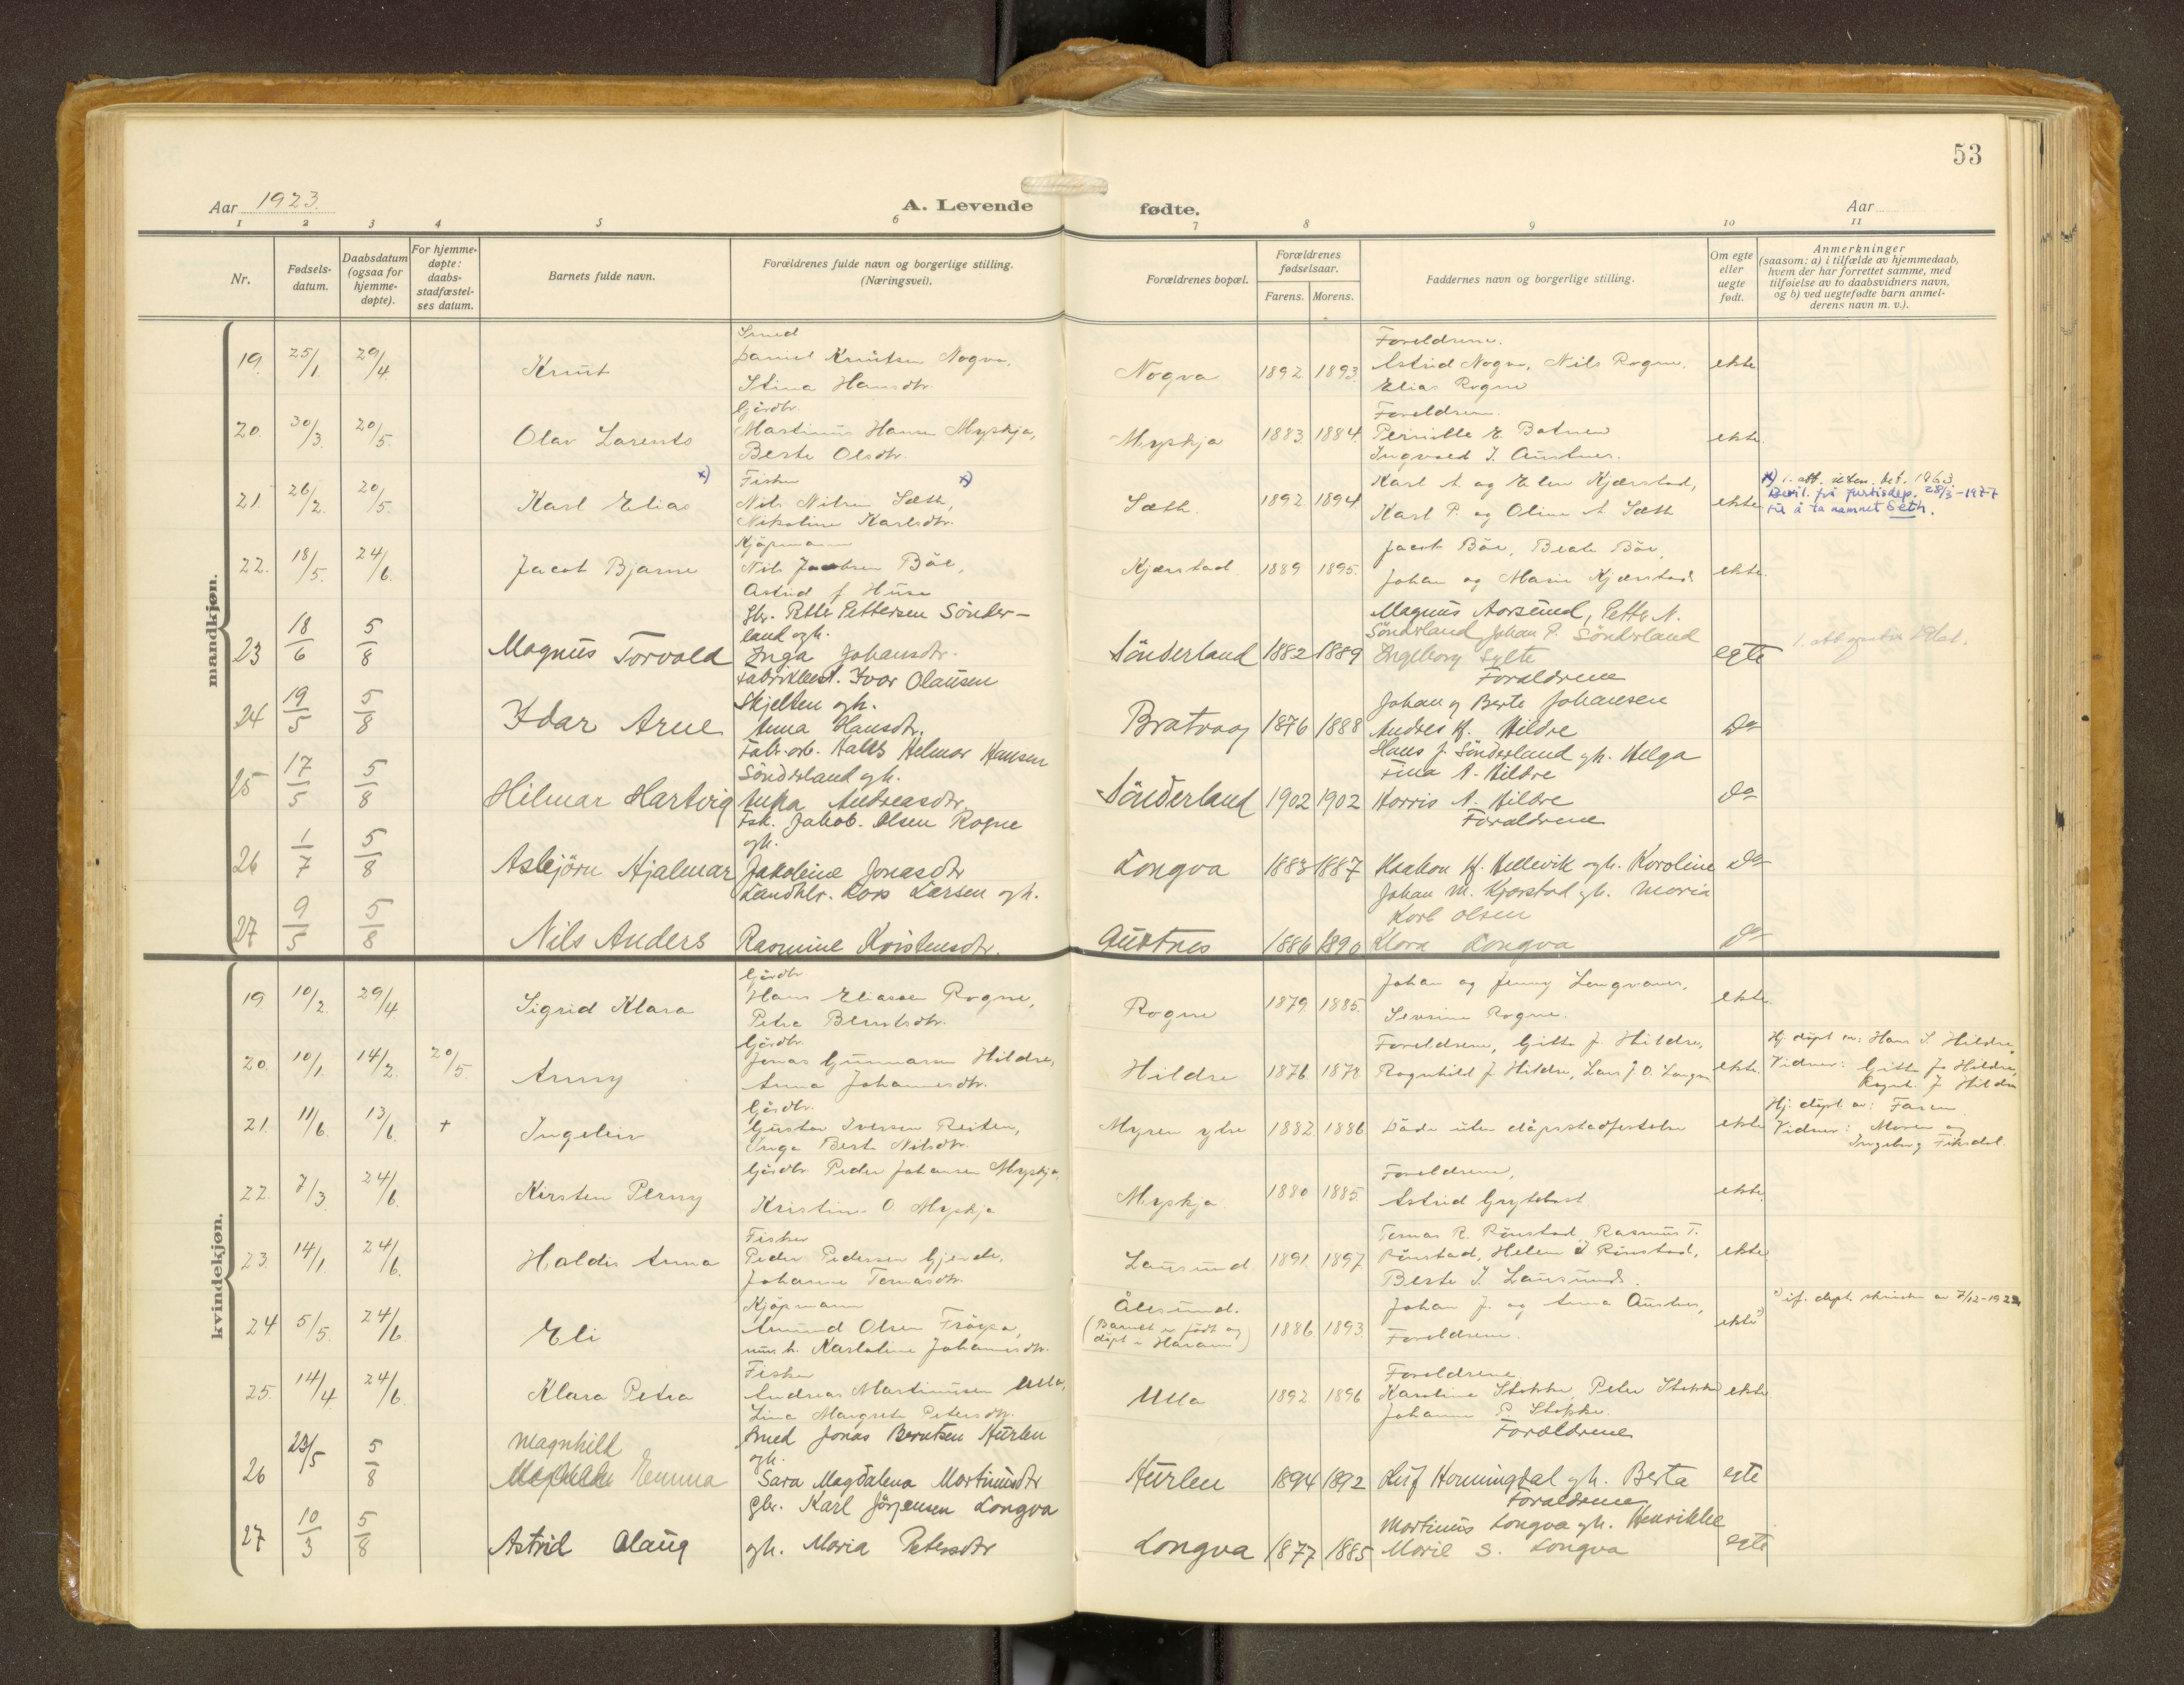 53
Aar 1923.
A. Levende fødte.
Aar
1 2 3 4 5 6 7 8 9 10 11
Nr.
Fødsels-
datum.
Daabsdatum
(ogsaa for
hjemme-
døpte).
For hjemme-
døpte:
daabs-
stadfæstel-
ses datum.
Barnets fulde navn.
Forældrenes fulde navn og borgerlige stilling.
(Næringsvei).
Forældrenes bopæl.
Forældrenes
fødselsaar.
Farens. Morens.
Faddernes navn og borgerlige stilling.
Om egte
eller
uegte
født.
Anmerkninger
(saasom: a) i tilfælde av hjemmedaab,
hvem der har forrettet samme, med
tilføielse av to daabsvidners navn,
og b) ved uegtefødte barn anmel-
derens navn m. v.).
mandkjøn.
19. 25/1 29/4 Knut
Smed
Daniel Knutsen Nogva.
Stina Hansdtr.
Nogva 1892 1893
Foreldrene.
Astrid Nogva, Nils Rogne.
Elias Rogne
ekte
20. 30/3. 20/5. Olav Larents
Gårdbr.
Martinus Hansen Myskja,
Berte Olsdtr.
Myskja 1883 1884.
Foreldrene.
Pernille E. Botnen
Ingvald J. Austnes.
ekte.
21. 26/2. 20/5. Karl Elias x)
Fisker x)
Nils Nilsen Sæth,
Nikoline Karlsdtr.
Sæth. 1892 1894
Karl A. og Elen Kjærstad,
Karl P. og Oline A. Sæth
ekte
x) 1. att. uten. bet. 1963.
Bevil. frå justisdep. 28/3-1977
til å ta namnet Seth.
22. 18/5. 24/6. Jacob Bjarne
Kjøpmann
Nils Jacobsen Bøe,
Astrid f. Huse
Kjærstad 1889 1895.
Jacob Bøe, Beate Bøe,
Johan og Marie Kjærstad.
ekte.
23 18/6 5/8 Magnus Torvald
Gbr. Petter Pettersen Sönder-
land ogh.
Inga Johansdtr.
Sönderland 1882 1889
Magnus Aarsund, Petter N.
Sönderland, Johan P. Sönderland
Ingeborg Sylte
Forældrene
egte
24 19/5 5/8 Idar Arne
Fabrikbest. Ivar Olausen
Skjelten ogh.
Anna Hansdtr.
Bratvaag 1876 1888
Johan og Berte Johansen
Andres K. Hildre
Do
25 17/5 5/8 Hilmar Hartvig
Fabr.arb. Hans Helmar Hansen
Sönderland ogh.
Anna Andreasdtr.
Sönderland 1902 1902
Hans J. Sönderland ogh. Helga
Fina A. Hildre
Harris A. Hildre
Forældrene
Do
26 1/7 5/8 Asbjörn Hjalmar
Fsk. Jakob Olsen Rogne
ogh.
Jakobine Jonasdtr
Longva 1883 1887
Haakon K. Hellevik ogh. Karoline
Do
27 9/5 5/8 Nils Anders
Landhlr. Lars Larsen ogh.
Rasmine Kristensdtr.
Austnes 1886 1890
Johan M. Kjærstad ogh. Maria
Karl Olsen
Klara Longva
Do
kvindekjøn.
19 10/2. 29/4. Sigrid Klara
Gårdbr
Hans Eliassen Rogne,
Petra Berntsdtr.
Rogne 1879 1885.
Johan og Jenny Longvanes,
Severine Rogne.
ekte.
20. 10/1. 14/2. 20/5. Anny
Gårdbr.
Jonas Gunnarsen Hildre,
Anna Johannesdtr.
Hildre 1876 1878
Foreldrene, Gitte J. Hildre,
Ragnhild J. Hildre, Lars J. O. Longva
ekte.
Hj. døpt av: Hans S. Hildre,
Vidner: Gitte J. Hildre,
Ragnh. J. Hildre
21. 11/6. 13/6. + Ingeleiv
Gårdbr.
Gustav Iversen Reiten,
Inga Berte Nilsdtr.
Myren ytre 1882 1886
Døde uten dåpsstadfestelse
ekte
Hj. døpt av: Faren.
Vidner: Moren og
Ingeborg Fiksdal.
22. 7/3. 24/6. Kirsten Perny
Gårdbr. Peder Johansen Myskja,
Kristine O. Myskja
Myskja. 1880 1885.
Foreldrene,
Astrid Grytebust
ekte.
23. 14/1. 24/6. Haldis Anna
Fisker
Peder Pedersen Gjerde,
Johanne Tomasdtr.
Lausund 1891 1897
Tomas R. Rønstad, Rasmus T.
Rønstad, Helene J. Rønstad,
Berte J. Lausund.
ekte
24 5/5. 24/6 Eli
Kjøpmann
Amund Olsen Frøysa,
Karloline Johannesdtr.
Ålesund.
(Barnet er født og
døpt i Haram)
1886 1893.
Johan J. og Anna Austnes,
Foreldrene.
ekte
25. 14/4. 24/6. Klara Petra
Fisker
Andreas Martinusen Ulla,
Lina Margrete Petersdtr.
Ulla 1892 1896
Foreldrene,
Karoline Stokke, Peter Stokke
Johanne P. Stokke.
ekte
26 23/5 5/8
Magnhild
Emma
Smed Jonas Berntsen Hurlen
ogh.
Sara Magdalena Martinusdtr
Hurlen 1894 1892
Forældrene
Leif Horningdal ogh. Berta
egte
27 10/3 5/8 Astrid Olaug
Gbr. Karl Jörgensen Longva
ogh. Maria Petersdtr
Longva 1877 1885
Forældrene
Martinus Longva ogh. Henrikke
Marie S. Longva
egte